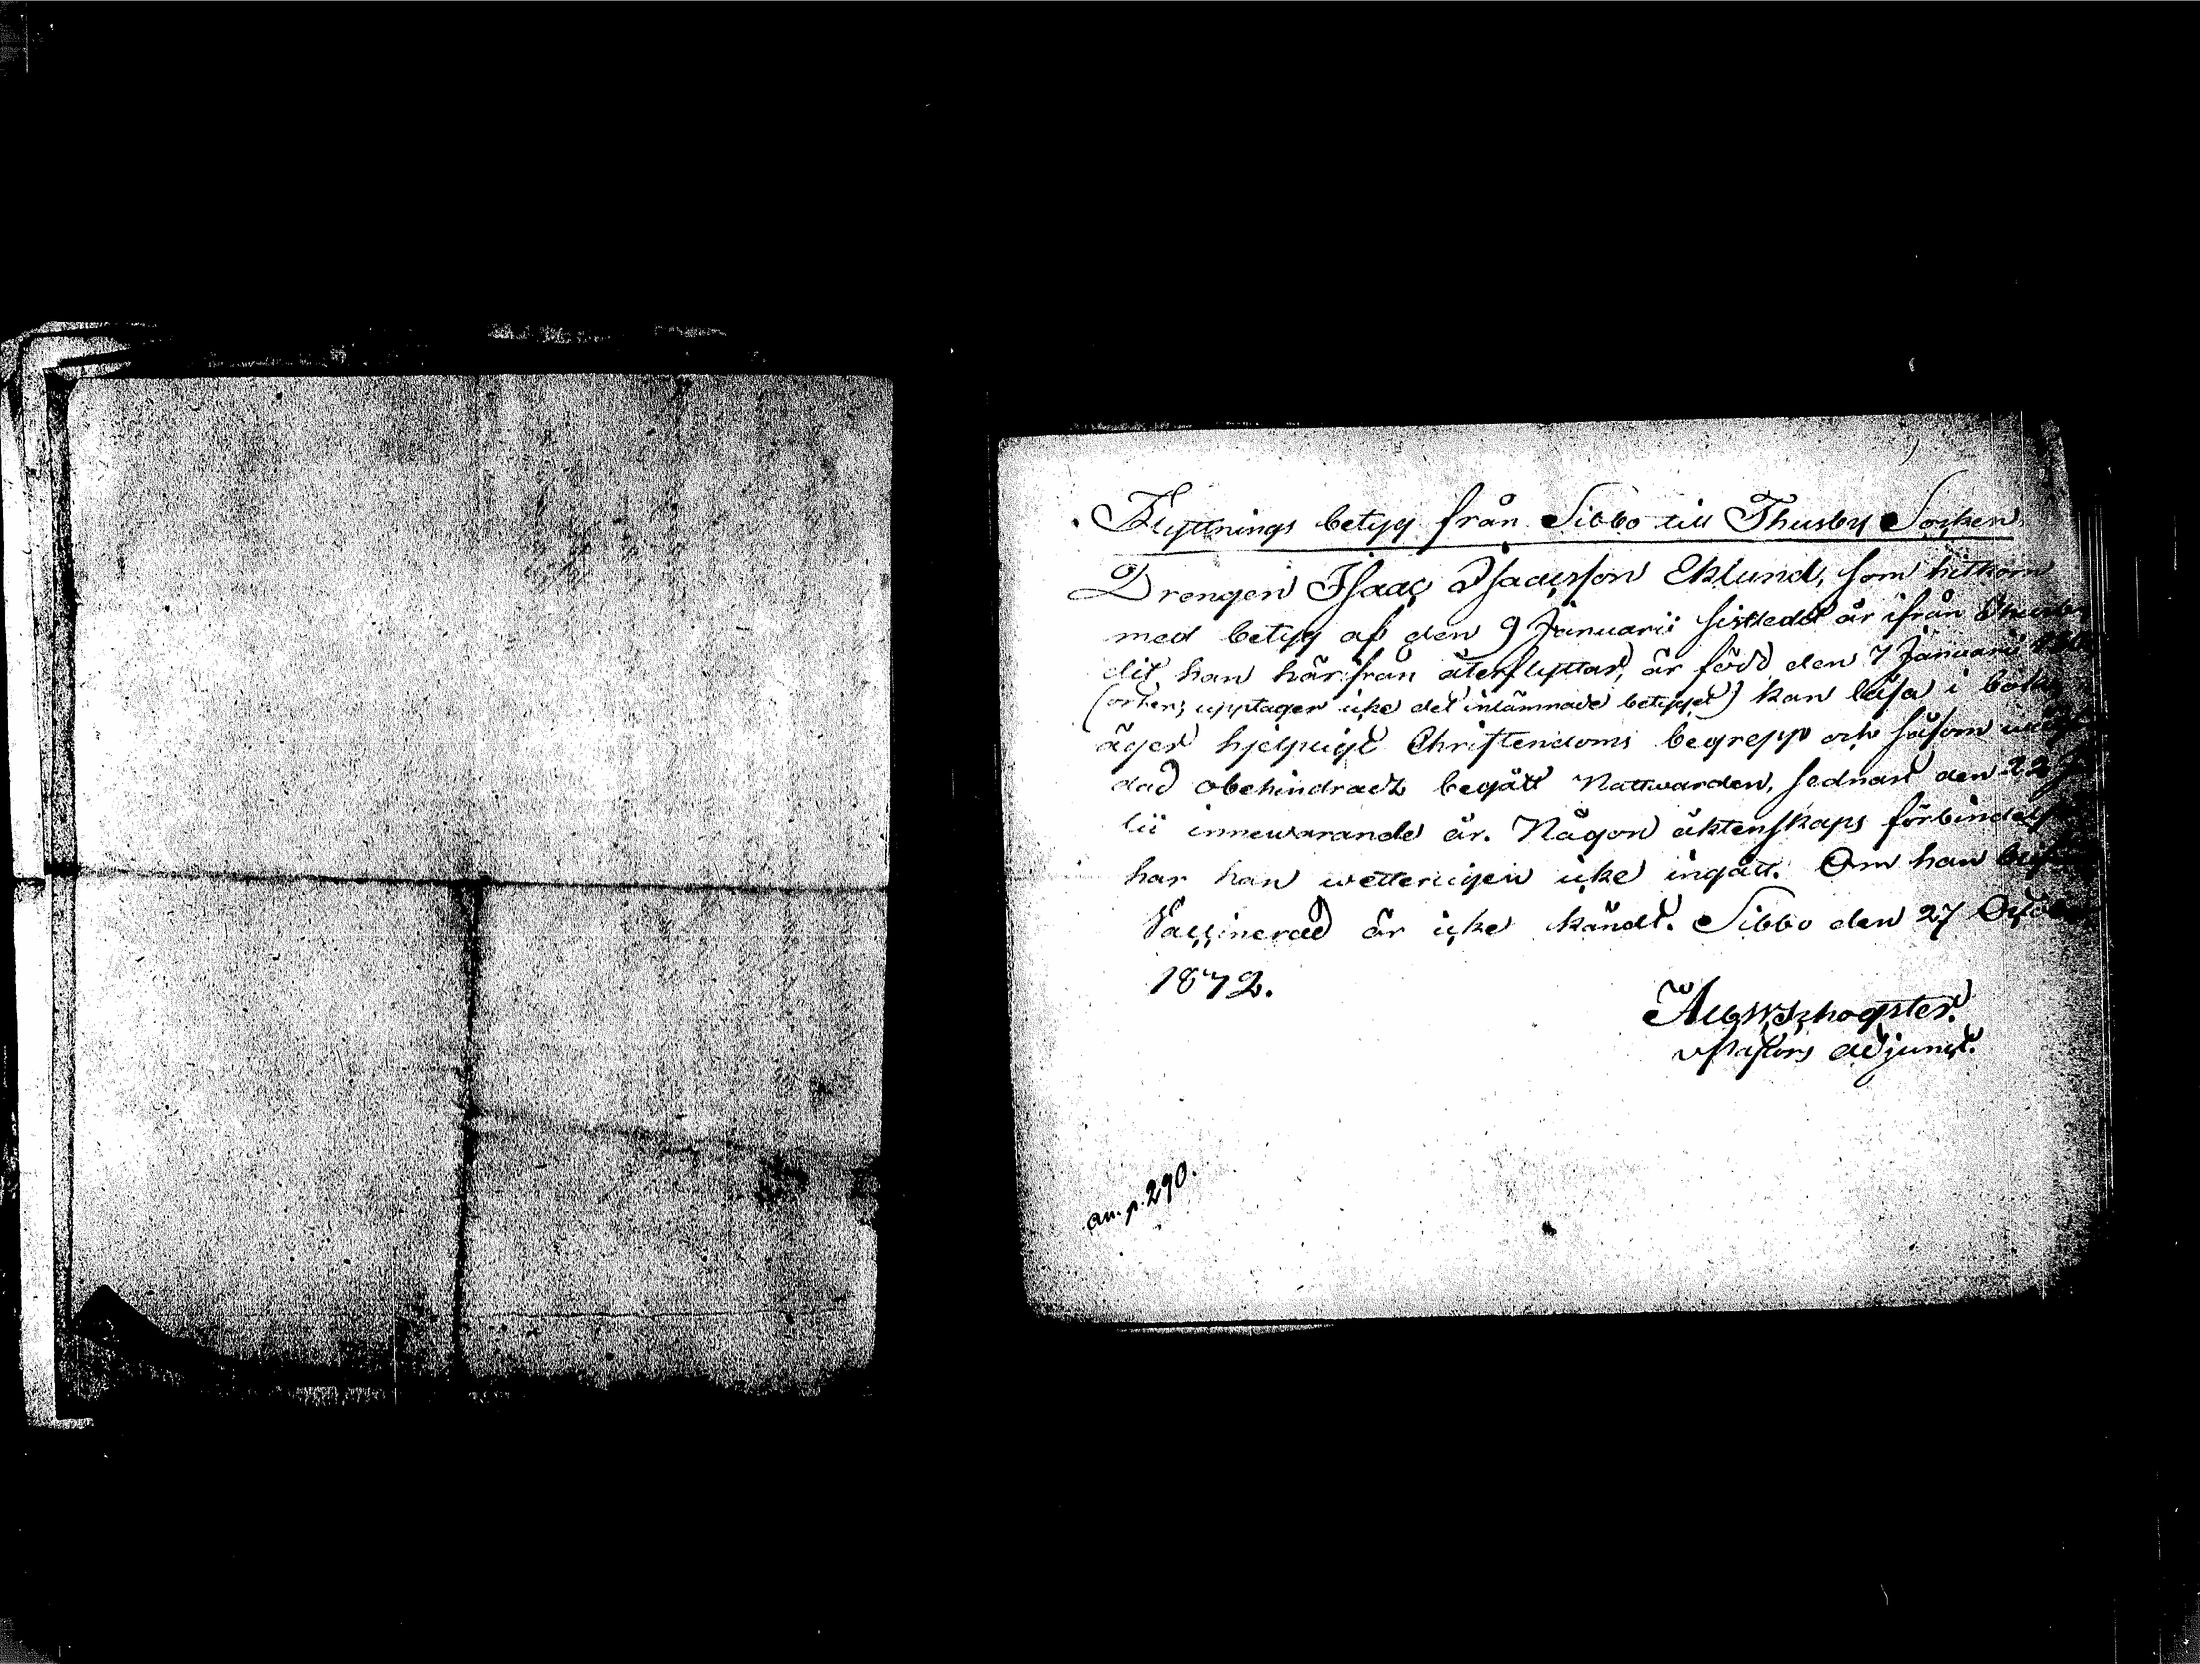 Flyttnings betyg från Sibbo till Thusby Socken
Drengen Isaac Isacsson Eklund, som hitkom
med betyg af den 9 Januarii sistledet år ifrån Thusby
dit han härifrån återflyttar, är född den 7 Januarii
(orten upptager icke det inlämnade betyget) kan läsa i
äger hjelpligt Christendoms begrepp och såsom
dad obehindradt begått Nattwarden, sednast den 22
lii innewarande år. Någon äktenskaps förbindelse
har han wetterligen icke ingått. Om han
Vaccinerad är icke kändt. Sibbo den 27
1872.
v Pastors adjunct.
an. p. 290.